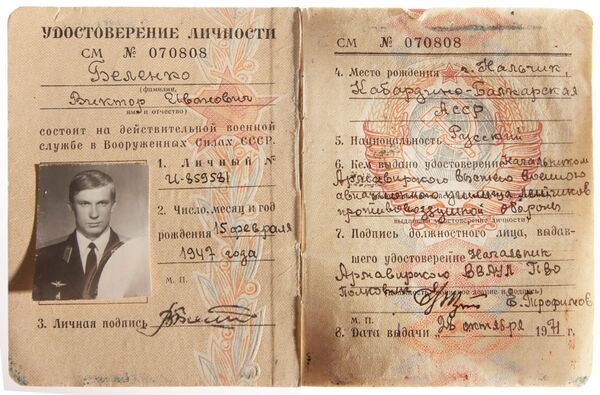 УДОСТОВЕРЕНИЕ ЛИЧНОСТИ
СМ № 070808
Беленко
(фамилия,
Виктор Иванович
имя и отчество)
состоит на действительной военной
службе в Вооруженных Силах СССР.
1. Личный №
И-859581
2. Число, месяц и год
рождения 15 февраля
1947 года
м. п.
3. Личная подпись
СМ № 070808
4. Место рождения г. Нальчик,
Кабардино-Балкарская
АССР
5. Национальность Русский
6. Кем выдано удостоверение Начальником
Армавирского высшего военного
авиационного училища лётчиков
противовоздушной обороны
7. Подпись должностного лица, выдав-
шего удостоверение Начальник
Армавирского ВВАУЛ ПВО
Полковник Б. Трофимов
м. п.
8. Дата выдачи „26 октября 1971 г.